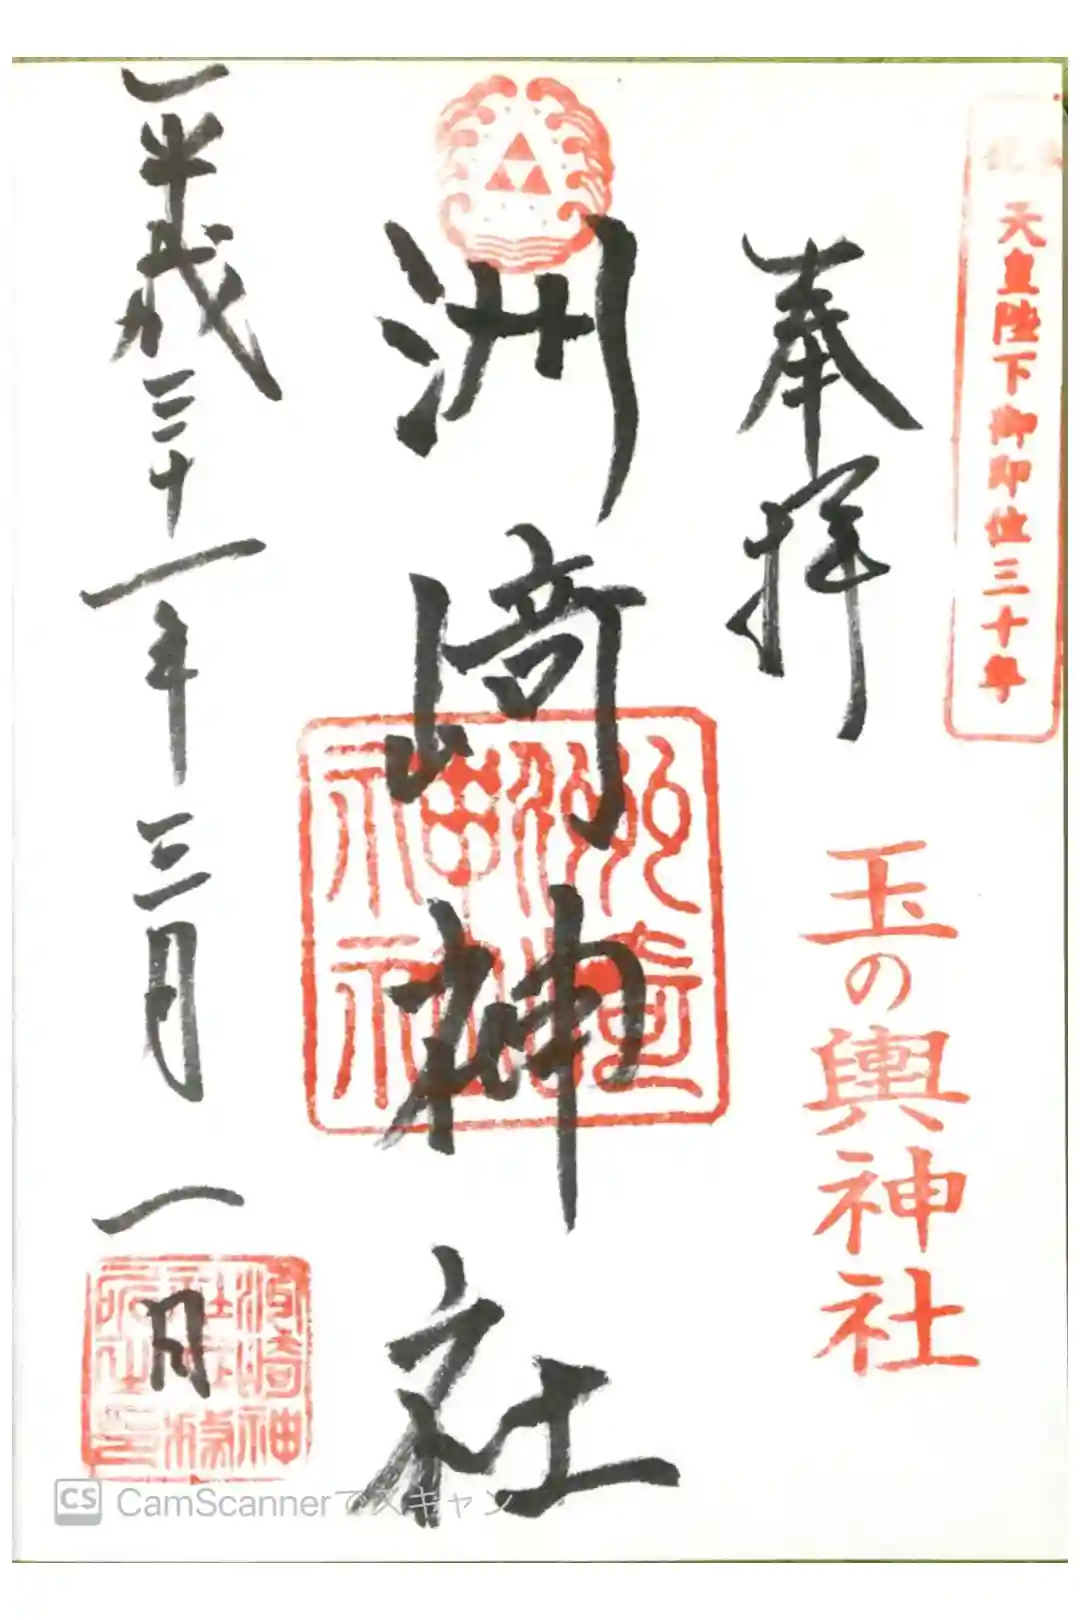 奉祝
天皇陛下御即位三十年
奉拝
玉の輿神社
洲崎神社
洲崎神社
平成三十一年三月一日
CS CamScannerでスキャン